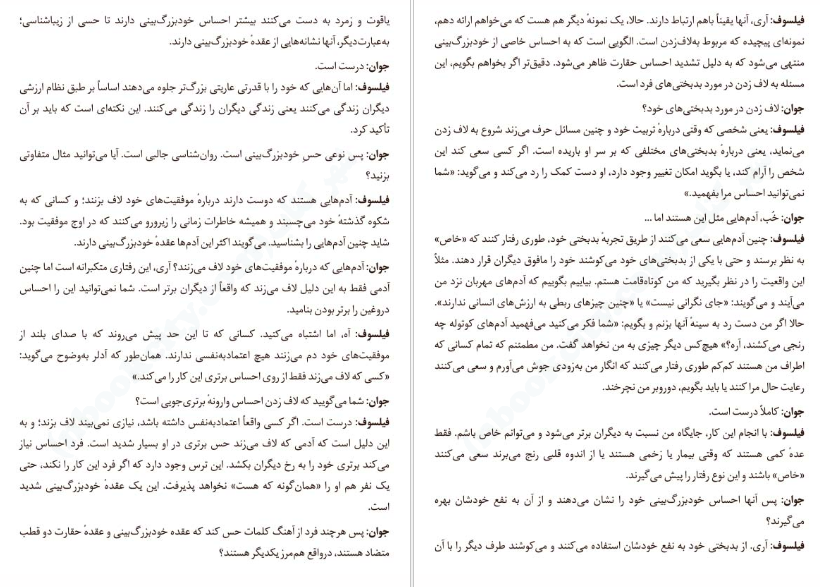 یاقوت و زمرد به دست می‌کنند بیشتر احساس خودبزرگ‌بینی دارند تا حسی از زیباشناسی؛
به‌عبارت‌دیگر، آنها نشانه‌هایی از عقدهٔ خودبزرگ‌بینی دارند.
جوان: درست است.
فیلسوف: اما آن‌هایی که خود را با قدرتی عاریتی بزرگ‌تر جلوه می‌دهند اساساً بر طبق نظام ارزشی
دیگران زندگی می‌کنند یعنی زندگی دیگران را زندگی می‌کنند. این نکته‌ای است که باید بر آن
تأکید کرد.
جوان: پس نوعی حسِ خودبزرگ‌بینی است. روان‌شناسی جالبی است. آیا می‌توانید مثال متفاوتی
بزنید؟
فیلسوف: آدم‌هایی هستند که دوست دارند دربارهٔ موفقیت‌های خود لاف بزنند؛ و کسانی که به
شکوه گذشتهٔ خود می‌چسبند و همیشه خاطرات زمانی را زیرورو می‌کنند که در اوج موفقیت بود.
شاید چنین آدم‌هایی را بشناسید. می‌گویند اکثر این آدم‌ها عقدهٔ خودبزرگ‌بینی دارند.
جوان: آدم‌هایی که دربارهٔ موفقیت‌های خود لاف می‌زنند؟ آری، این رفتاری متکبرانه است اما چنین
آدمی فقط به این دلیل لاف می‌زند که واقعاً از دیگران برتر است. شما نمی‌توانید این را احساس
دروغین را برتر بودن بنامید.
فیلسوف: آه، اما اشتباه می‌کنید. کسانی که تا این حد پیش می‌روند که با صدای بلند از
موفقیت‌های خود دم می‌زنند هیچ اعتمادبه‌نفسی ندارند. همان‌طور که آدلر به‌وضوح می‌گوید:
«کسی که لاف می‌زند فقط از روی احساس برتری این کار را می‌کند.»
جوان: شما می‌گویید که لاف زدن احساس وارونهٔ برتری‌جویی است؟
فیلسوف: درست است. اگر کسی واقعاً اعتمادبه‌نفس داشته باشد، نیازی نمی‌بیند لاف بزند؛ و به
این دلیل است که آدمی که لاف می‌زند حس برتری در او بسیار شدید است. فرد احساس نیاز
می‌کند برتری خود را به رخ دیگران بکشد. این ترس وجود دارد که اگر فرد این کار را نکند، حتی
یک نفر هم او را «همان‌گونه که هست» نخواهد پذیرفت. این یک عقدهٔ خودبزرگ‌بینی شدید
است.
جوان: پس هرچند فرد از آهنگ کلمات حس کند که عقده خودبزرگ‌بینی و عقدهٔ حقارت دو قطب
متضاد هستند، درواقع هم‌مرز یکدیگر هستند؟
فیلسوف: آری، آنها یقیناً باهم ارتباط دارند. حالا، یک نمونهٔ دیگر هم هست که می‌خواهم ارائه دهم،
نمونه‌ای پیچیده که مربوط به‌لاف‌زدن است. الگویی است که به احساس خاصی از خودبزرگ‌بینی
منتهی می‌شود که به دلیل تشدید احساس حقارت ظاهر می‌شود. دقیق‌تر اگر بخواهم بگویم، این
مسئله به لاف زدن در مورد بدبختی‌های فرد است.
جوان: لاف زدن در مورد بدبختی‌های خود؟
فیلسوف: یعنی شخصی که وقتی دربارهٔ تربیت خود و چنین مسائل حرف می‌زند شروع به لاف زدن
می‌نماید، یعنی دربارهٔ بدبختی‌های مختلفی که بر سر او باریده است. اگر کسی سعی کند این
شخص را آرام کند، یا بگوید امکان تغییر وجود دارد، او دست کمک را رد می‌کند و می‌گوید: «شما
نمی‌توانید احساس مرا بفهمید.»
جوان: خُب، آدم‌هایی مثل این هستند اما ...
فیلسوف: چنین آدم‌هایی سعی می‌کنند از طریق تجربهٔ بدبختی خود، طوری رفتار کنند که «خاص»
به نظر برسند و حتی با یکی از بدبختی‌های خود می‌کوشند خود را مافوق دیگران قرار دهند. مثلاً
این واقعیت را در نظر بگیرید که من کوتاه‌قامت هستم. بیاییم بگوییم که آدم‌های مهربان نزد من
می‌آیند و می‌گویند: «جای نگرانی نیست» یا «چنین چیزهای ربطی به ارزش‌های انسانی ندارند».
حالا اگر من دست رد به سینهٔ آنها بزنم و بگویم: «شما فکر می‌کنید می‌فهمید آدم‌های کوتوله چه
رنجی می‌کشند، آره؟» هیچ‌کس دیگر چیزی به من نخواهد گفت. من مطمئنم که تمام کسانی که
اطراف من هستند کم‌کم طوری رفتار می‌کنند که انگار من به‌زودی جوش می‌آورم و سعی می‌کنند
رعایت حال مرا کنند یا باید بگویم، دوروبر من نچرخند.
جوان: کاملاً درست است.
فیلسوف: با انجام این کار، جایگاه من نسبت به دیگران برتر می‌شود و می‌توانم خاص باشم. فقط
عدهٔ کمی هستند که وقتی بیمار یا زخمی هستند یا از اندوه قلبی رنج می‌برند سعی می‌کنند
«خاص» باشند و این نوع رفتار را پیش می‌گیرند.
جوان: پس آنها احساس خودبزرگ‌بینی خود را نشان می‌دهند و از آن به نفع خودشان بهره
می‌گیرند؟
فیلسوف: آری. از بدبختی خود به نفع خودشان استفاده می‌کنند و می‌کوشند طرف دیگر را با آن